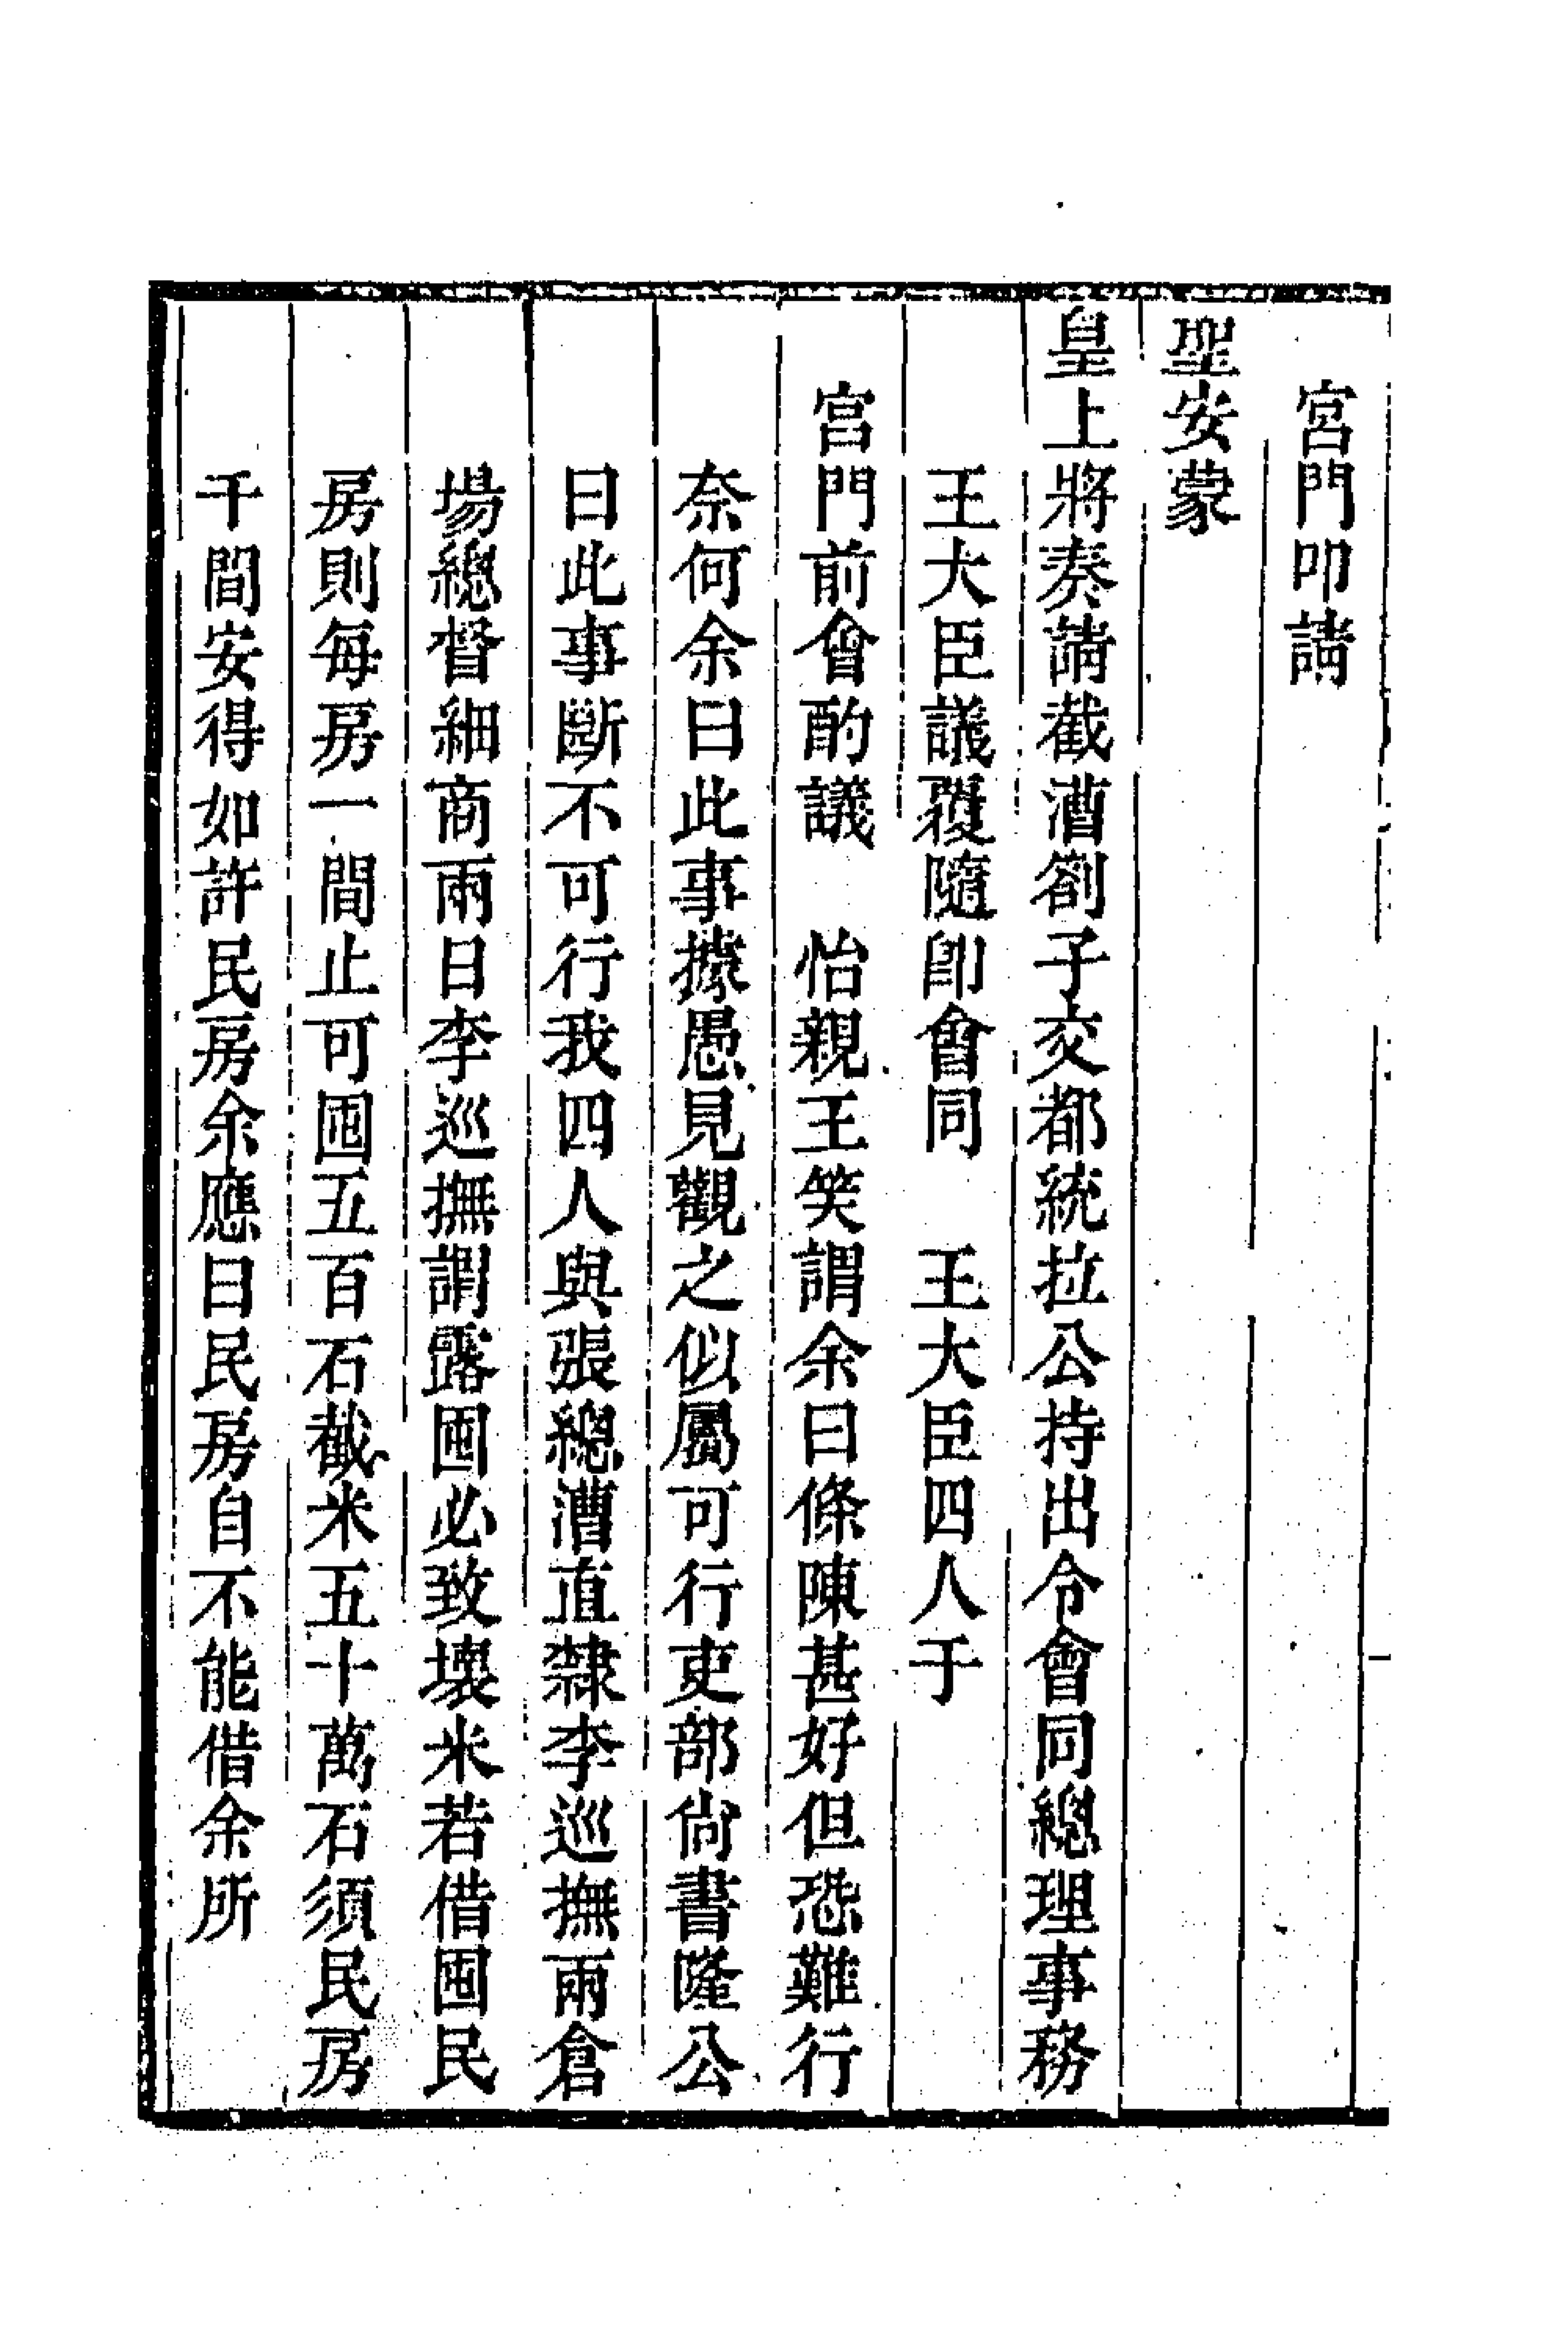 宮門叩請
聖安蒙
皇上將奏請截漕劄子交都統拉公持出令會同總理事務
王大臣議覆隨卽會同　王大臣四人于
宮門前會酌議　怡親王笑謂余曰條陳甚好但恐難行
奈何余曰此事據愚見觀之似屬可行吏部尙書隆公
曰此事斷不可行我四人與張總漕直隸李巡撫兩倉
場總督細商兩日李巡撫謂露囤必致壞米若借囤民
房則每房一間止可囤五百石截米五十萬石須民房
千間安得如許民房余應曰民房自不能借余所